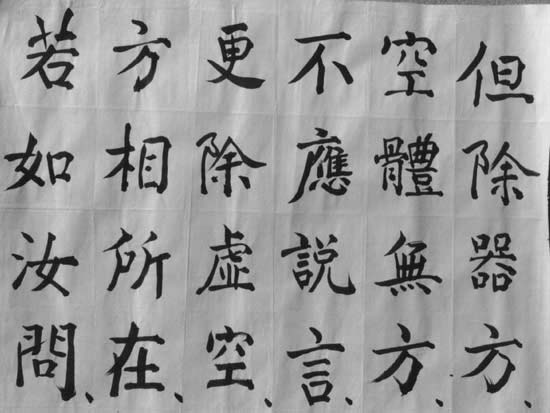 但除器方、
空體無方、
不應說言、
更除虛空、
方相所在、
若如汝問、